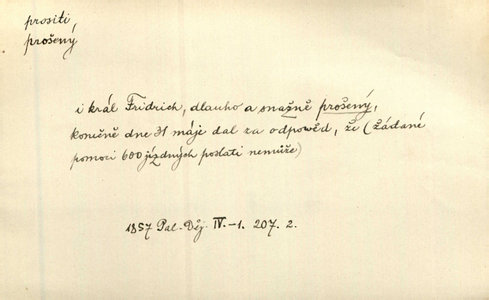 prositi
prošený
i král Fridrich, dlauho a snažně prošený,
konečně dne 31 máje dal za odpowěd, že (žádané
pomoci 600 jízdných poslati nemůže)
1857 Pal. Děj. IV.-1. 207. 2.